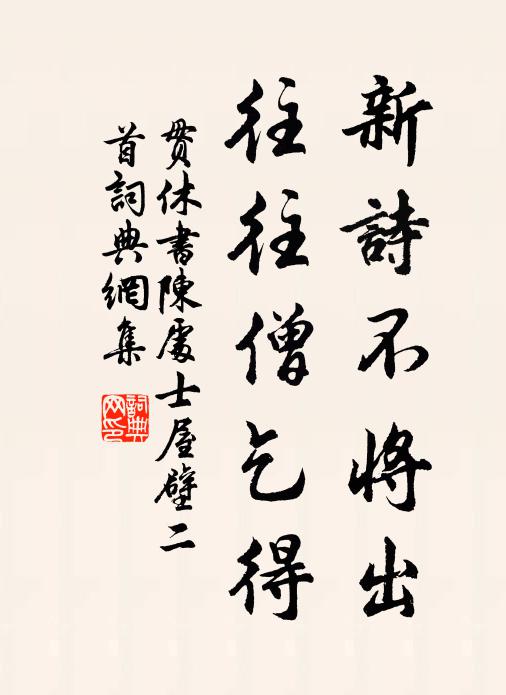 新詩不將出
往往僧乞得
貫休書陳處士屋壁二
首詞典網集
詞典网印